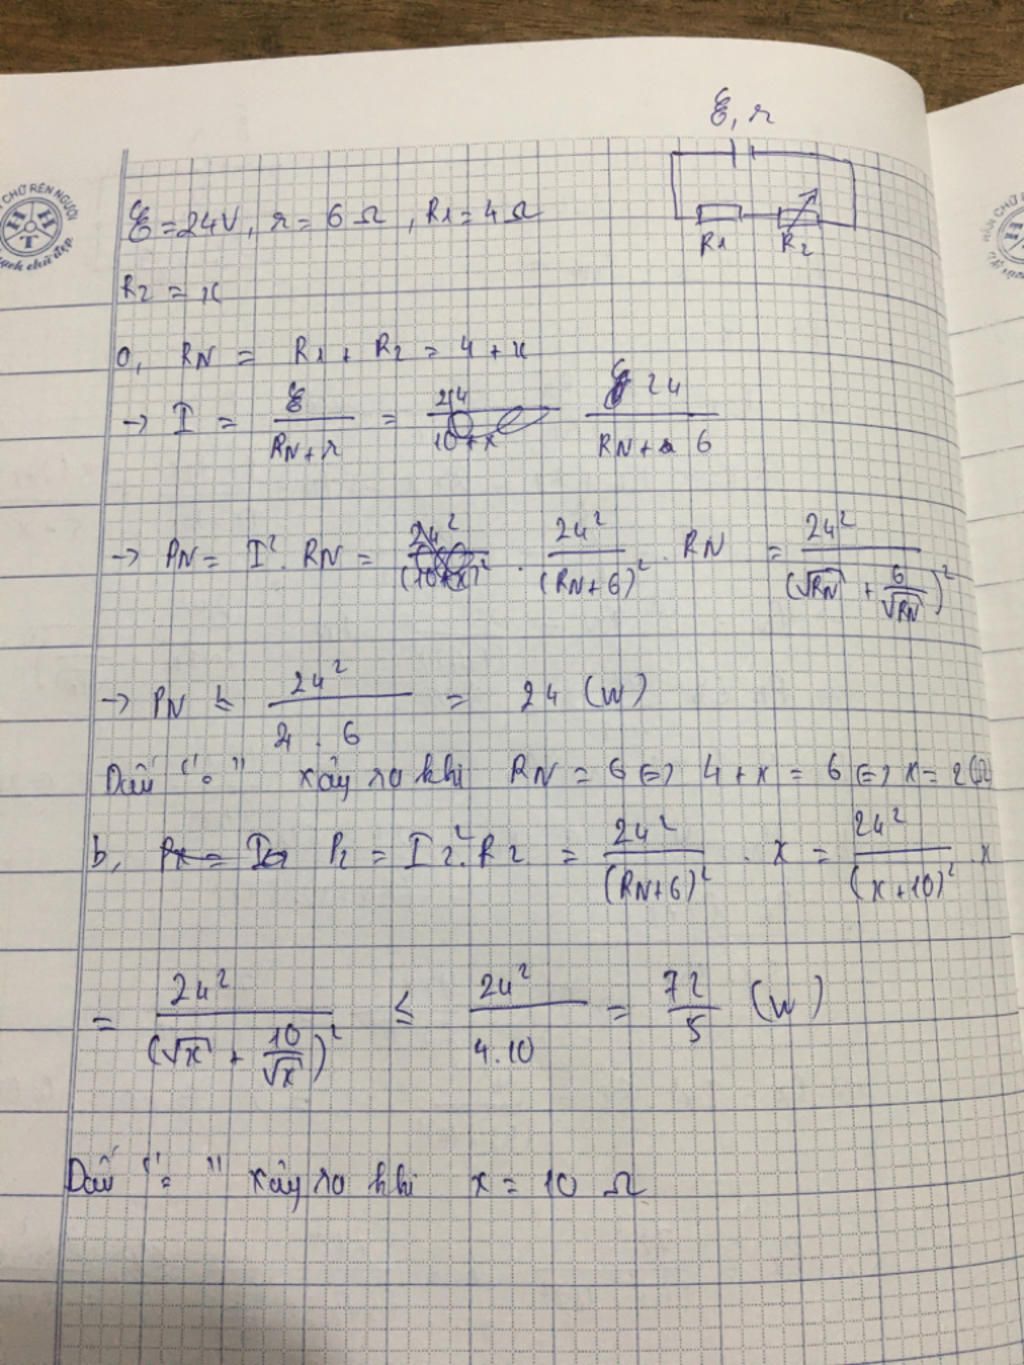 ℰ, r
CHỮ RÈN NGƯỜI
HHT
ạch chữ đẹp
ℰ = 24V, r = 6 Ω, R1 = 4 Ω
R1 R2
R2 = x
a, RN = R1 + R2 = 4 + x
→ I = ℰ / (RN + r) = 24 / (10 + x) 24 / (RN + 6)
→ PN = I². RN = 24² / (10 + x)² . 24² / (RN + 6)² . RN = 24² / (√RN + 6/√RN)²
→ PN ≤ 24² / (4 . 6) = 24 (W)
Dấu "=" xảy ra khi RN = 6 ⇔ 4 + x = 6 ⇔ x = 2 Ω
b, Px = I P2 = I2². R2 = 24² / (RN+6)² . x = 24² / (x + 10)² . x
= 24² / (√x + 10/√x)² ≤ 24² / (4.10) = 72/5 (W)
Dấu "=" xảy ra khi x = 10 Ω